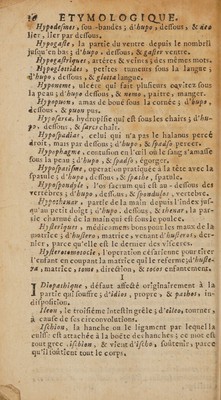 56 ETYMOLOGIQUE.
Hypodesmes, sou-bandes; d'hupo, dessous, & deo
lier, lier par dessous.
Hypogastre, la partie du ventre depuis le nombril
jusqu'en bas; d'hupo, dessous, & gaster ventre.
Hypogastriques, arteres & veines; des mêmes mots.
Hypoglottides, petites tumeurs sous la langue;
d'hupo, dessous, & glotta langue.
Hyponomes, ulcere qui fait plusieurs caavitez sous
la peau; d'hupo dessous, & nemo, paître, manger.
Hypopyon, amas de bouë sous la cornée; d'hupo,
dessous, & puon pus.
Hyposarca, hydropisie qui est sous les chairs; d'hu-
po, dessous, & sarcs chair.
Hypospadias, celui qui n'a pas le balanus percé
droit, mais par dessous; d'hupo, & spadso percer.
Hyposphagme, contusion en l'œil où le sang s'amasse
sous la peau; d'hupo, & sphadso, égorger.
Hypospatisme, operation pratiquée à la tête avec la
spatule; d'hupo, dessous, & spathe, spatule.
Hypospondyle, l'os sacrum qui est au-dessous des
vertebres; d'hupo, dessous, & spondulos, vertebre.
Hypothenar, partie de la main depuis l'index jus-
qu'au petit doigt; d'hupo, dessous, & thenar, la par-
tie charnuë de la main qui est sous le poulce.
Hysteriques, médicamens bons pour les maux de la
matrice; d'hustera, matrice, venant d'husteros, der-
nier, parce qu'elle est le dernier des visceres.
Hysterotomotocie, l'operation césarienne pour tirer
l'enfant en coupant la matrice qui le renferme; d'huste-
ra, matrice, tome, dissection, & tocos enfantement.
I
Idiopathique, défaut affecté originairement à la
partie qui souffre; d'idios, propre, & pathos, in-
disposition.
Ileon, le troisiéme intestin grêle; d'eileo, tourner,
à cause de ses circonvolutions.
Ischion, la hanche ou le ligament par lequel la
cuisse est attachée à la boëte des hanches; ce mot est
tout grec ischion, & vient d'ischo, soûtenir, parce
qu'il soûtient tout le corps.